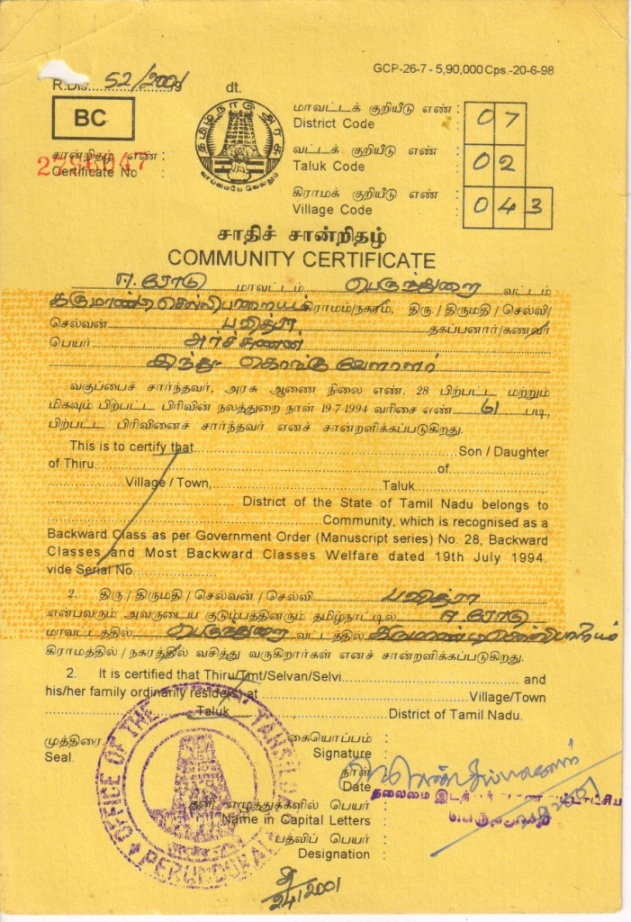 GCP-26-7 - 5,90,000 Cps.-20-6-98
R.Dis. 52/2001 dt.
BC
தமிழ்நாடு அரசு
வாய்மையே வெல்லும்
சான்றிதழ் எண் :
Certificate No
மாவட்டக் குறியீடு எண் :
District Code : 07
வட்டக் குறியீடு எண் :
Taluk Code : 02
கிராமக் குறியீடு எண் :
Village Code : 043
சாதிச் சான்றிதழ்
COMMUNITY CERTIFICATE
ஈரோடு மாவட்டம் பெருந்துறை வட்டம்
கிராமம்/நகரம், திரு / திருமதி / செல்வி/
செல்வன் பவித்ரா தகப்பனார்/கணவர்
பெயர் அரச்சுணன்
இந்து- கொங்கு வேளாளர்
வகுப்பைச் சார்ந்தவர், அரசு ஆணை நிலை எண். 28 பிற்பட்ட மற்றும்
மிகவும் பிற்பட்ட பிரிவின் நலத்துறை நாள் 19-7-1994 வரிசை எண் 61 படி,
பிற்பட்ட பிரிவினைச் சார்ந்தவர் எனச் சான்றளிக்கப்படுகிறது.
This is to certify that Son / Daughter
of Thiru of
Village / Town, Taluk
District of the State of Tamil Nadu belongs to
Community, which is recognised as a
Backward Class as per Government Order (Manuscript series) No. 28, Backward
Classes and Most Backward Classes Welfare dated 19th July 1994.
vide Serial No.
2. திரு / திருமதி / செல்வன் / செல்வி பவித்ரா
என்பவரும் அவருடைய குடும்பத்தினரும் தமிழ்நாட்டில் ஈரோடு
மாவட்டத்தில் பெருந்துறை வட்டத்தில்
கிராமத்தில் / நகரத்தில் வசித்து வருகிறார்கள் எனச் சான்றளிக்கப்படுகிறது.
2. It is certified that Thiru/Tmt/Selvan/Selvi and
his/her family ordinarily reside(s) at Village/Town
Taluk District of Tamil Nadu.
முத்திரை
Seal.
OFFICE OF THE TAHSILDAR
PERUNDURAI
கையொப்பம் :
Signature
நாள்
Date
தனி எழுத்துக்களில் பெயர் :
Name in Capital Letters :
பதவிப் பெயர் :
Designation :
2/4/2001